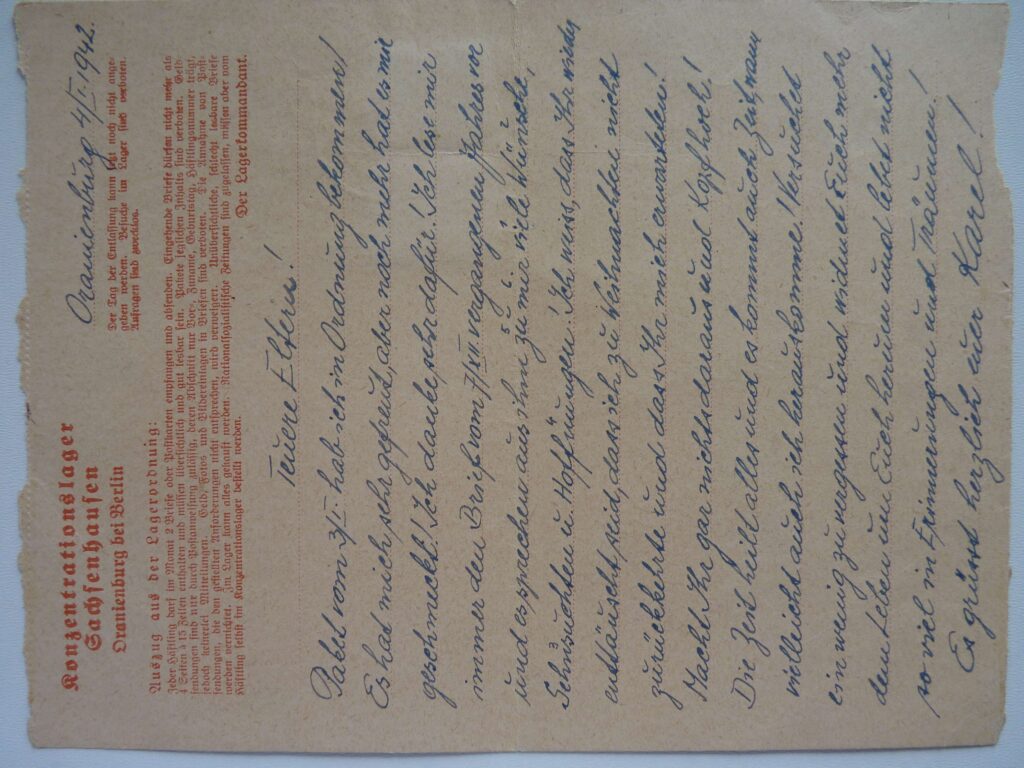 Konzentrationslager
Sachsenhausen
Oranienburg bei Berlin
Auszug aus der Lagerordnung:
Jeder Häftling darf im Monat 2 Briefe oder Postkarten empfangen und absenden. Eingehende Briefe dürfen nicht mehr als
4 Seiten à 15 Zeilen enthalten und müssen übersichtlich und gut lesbar sein. Pakete jeglichen Inhalts sind verboten. Geld-
sendungen sind nur durch Postanweisung zulässig, deren Abschnitt nur Vor-, Zuname, Geburtstag, Häftlingsnummer trägt,
jedoch keinerlei Mitteilungen. Geld, Fotos und Bildereinlagen in Briefen sind verboten. Die Annahme von Post-
sendungen, die den gestellten Anforderungen nicht entsprechen, wird verweigert. Unübersichtliche, schlecht lesbare Briefe
werden vernichtet. Im Lager kann alles gekauft werden. Nationalsozialistische Zeitungen sind zugelassen, müssen aber vom
Häftling selbst im Konzentrationslager bestellt werden.
Der Lagerkommandant.
Oranienburg 4/I. 1942.
Der Tag der Entlassung kann jetzt noch nicht ange-
geben werden. Besuche im Lager sind verboten.
Anfragen sind zwecklos.
Teuere Eltern!
Paket vom 3/I hab ich in Ordnung bekommen!
Es hat mich sehr gefreud, aber noch mehr hat es mir
geschmeckt! Ich danke sehr dafür! Ich lese mir
immer den Brief vom 7/XII vergangenen Jahres vor
und es sprechen aus ihm zu mir so viele Wünsche,
Sehnsuchten u. Hoffnungen! Ich weiss, dass Ihr
enttäuscht seid, dass ich zu Weihnachten nicht
zurückkehrte und dass Ihr mich erwartetet!
Macht Ihr gar nichts daraus und Kopf hoch!
Die Zeit heilt alles und es kommt auch Zeit, wann
vielleicht auch ich herauskomme! Versuchet
ein wenig zu vergessen und widmet Euch mehr
dem Leben um Euch herum und lebet nicht
so viel in Erinnerungen und Träumen!
Es grüsst herzlich euer Karel!